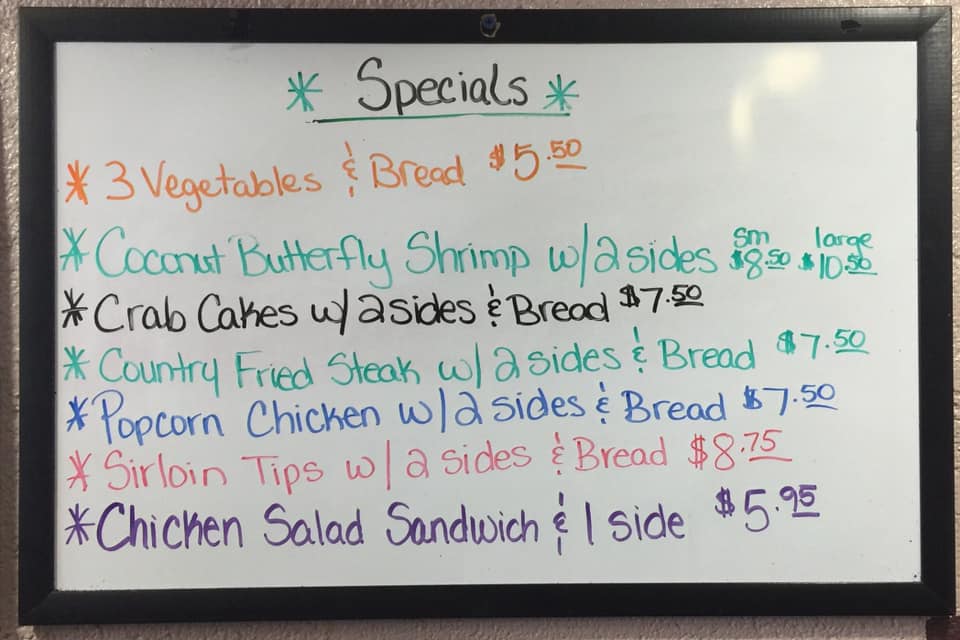 * Specials *
* 3 Vegetables & Bread $5.50
* Coconut Butterfly Shrimp w/2 sides sm $8.50 large $10.50
* Crab Cakes w/ 2 sides & Bread $7.50
* Country Fried Steak w/ 2 sides & Bread $7.50
* Popcorn Chicken w/2 sides & Bread $7.50
* Sirloin Tips w/ 2 sides & Bread $8.75
* Chicken Salad Sandwich & 1 side $5.95